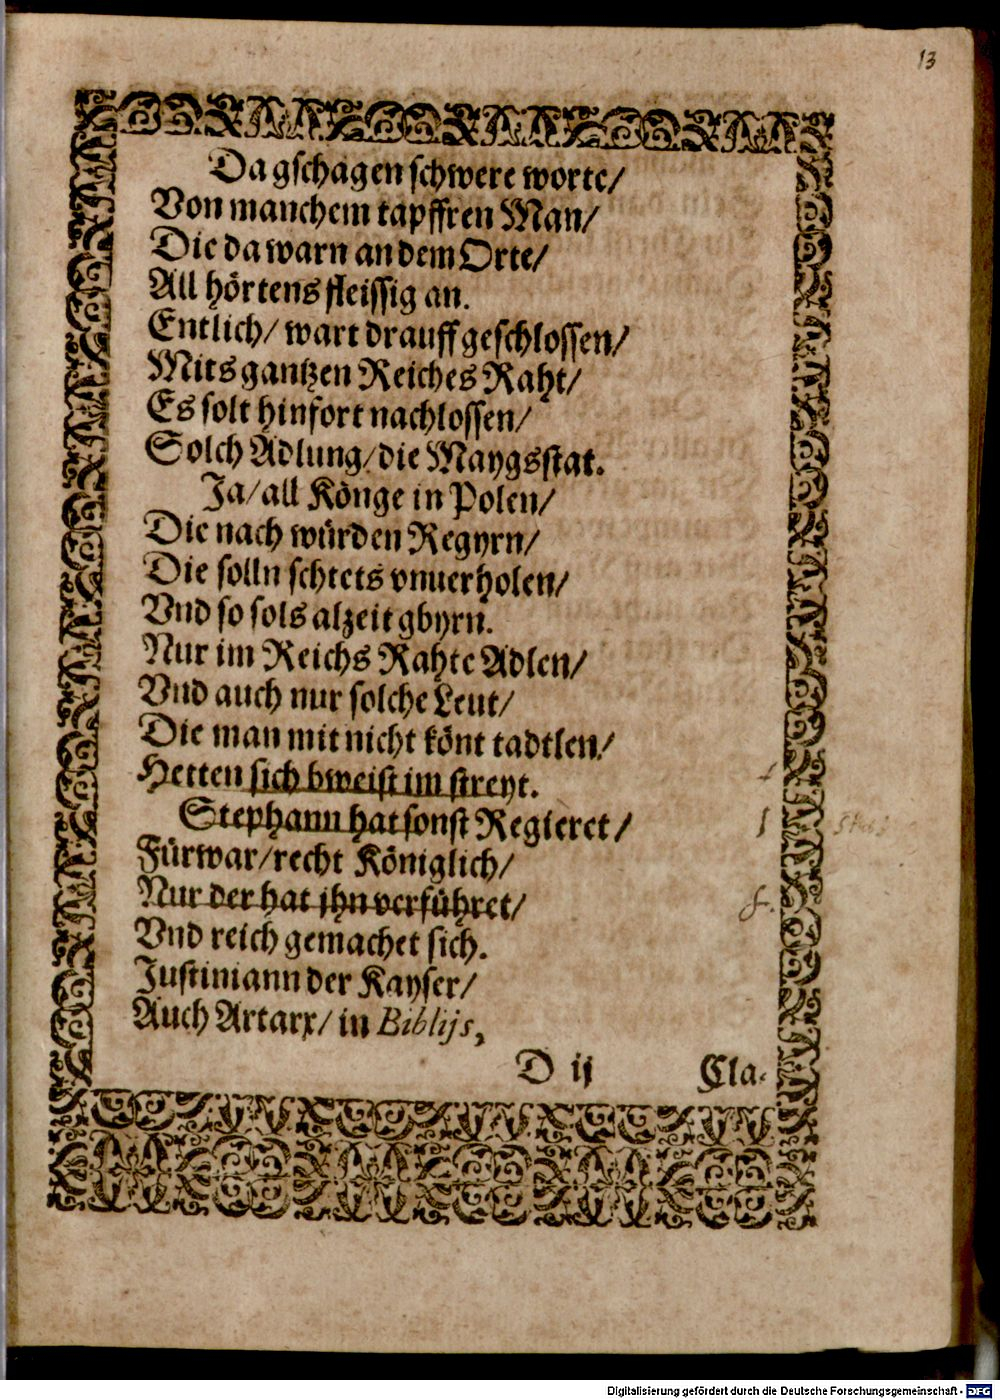 13
Da gschagen schwere worte/
Von manchem tapffren Man/
Die da warn an dem Orte/
All hörtens fleissig an.
Entlich/ wart drauff geschlossen/
Mits gantzen Reiches Raht/
Es solt hinfort nachlossen/
Solch Adlung/ die Maygsstat.
Ja/ all Könge in Polen/
Die nach würden Regyrn/
Die solln schtets vnuerholen/
Vnd so sols alzeit gbyrn.
Nur im Reichs Rahte Adlen/
Vnd auch nur solche Leut/
Die man mit nicht könt tadtlen/
Hetten sich bweist im streyt.
Stephann hat sonst Regieret/
Fürwar/ recht Königlich/
Nur der hat ihn verführet/
Vnd reich gemachet sich.
Justiniann der Kayser/
Auch Artarx/ in Biblijs,
D ij Cla-
Digitalisierung gefördert durch die Deutsche Forschungsgemeinschaft - DFG